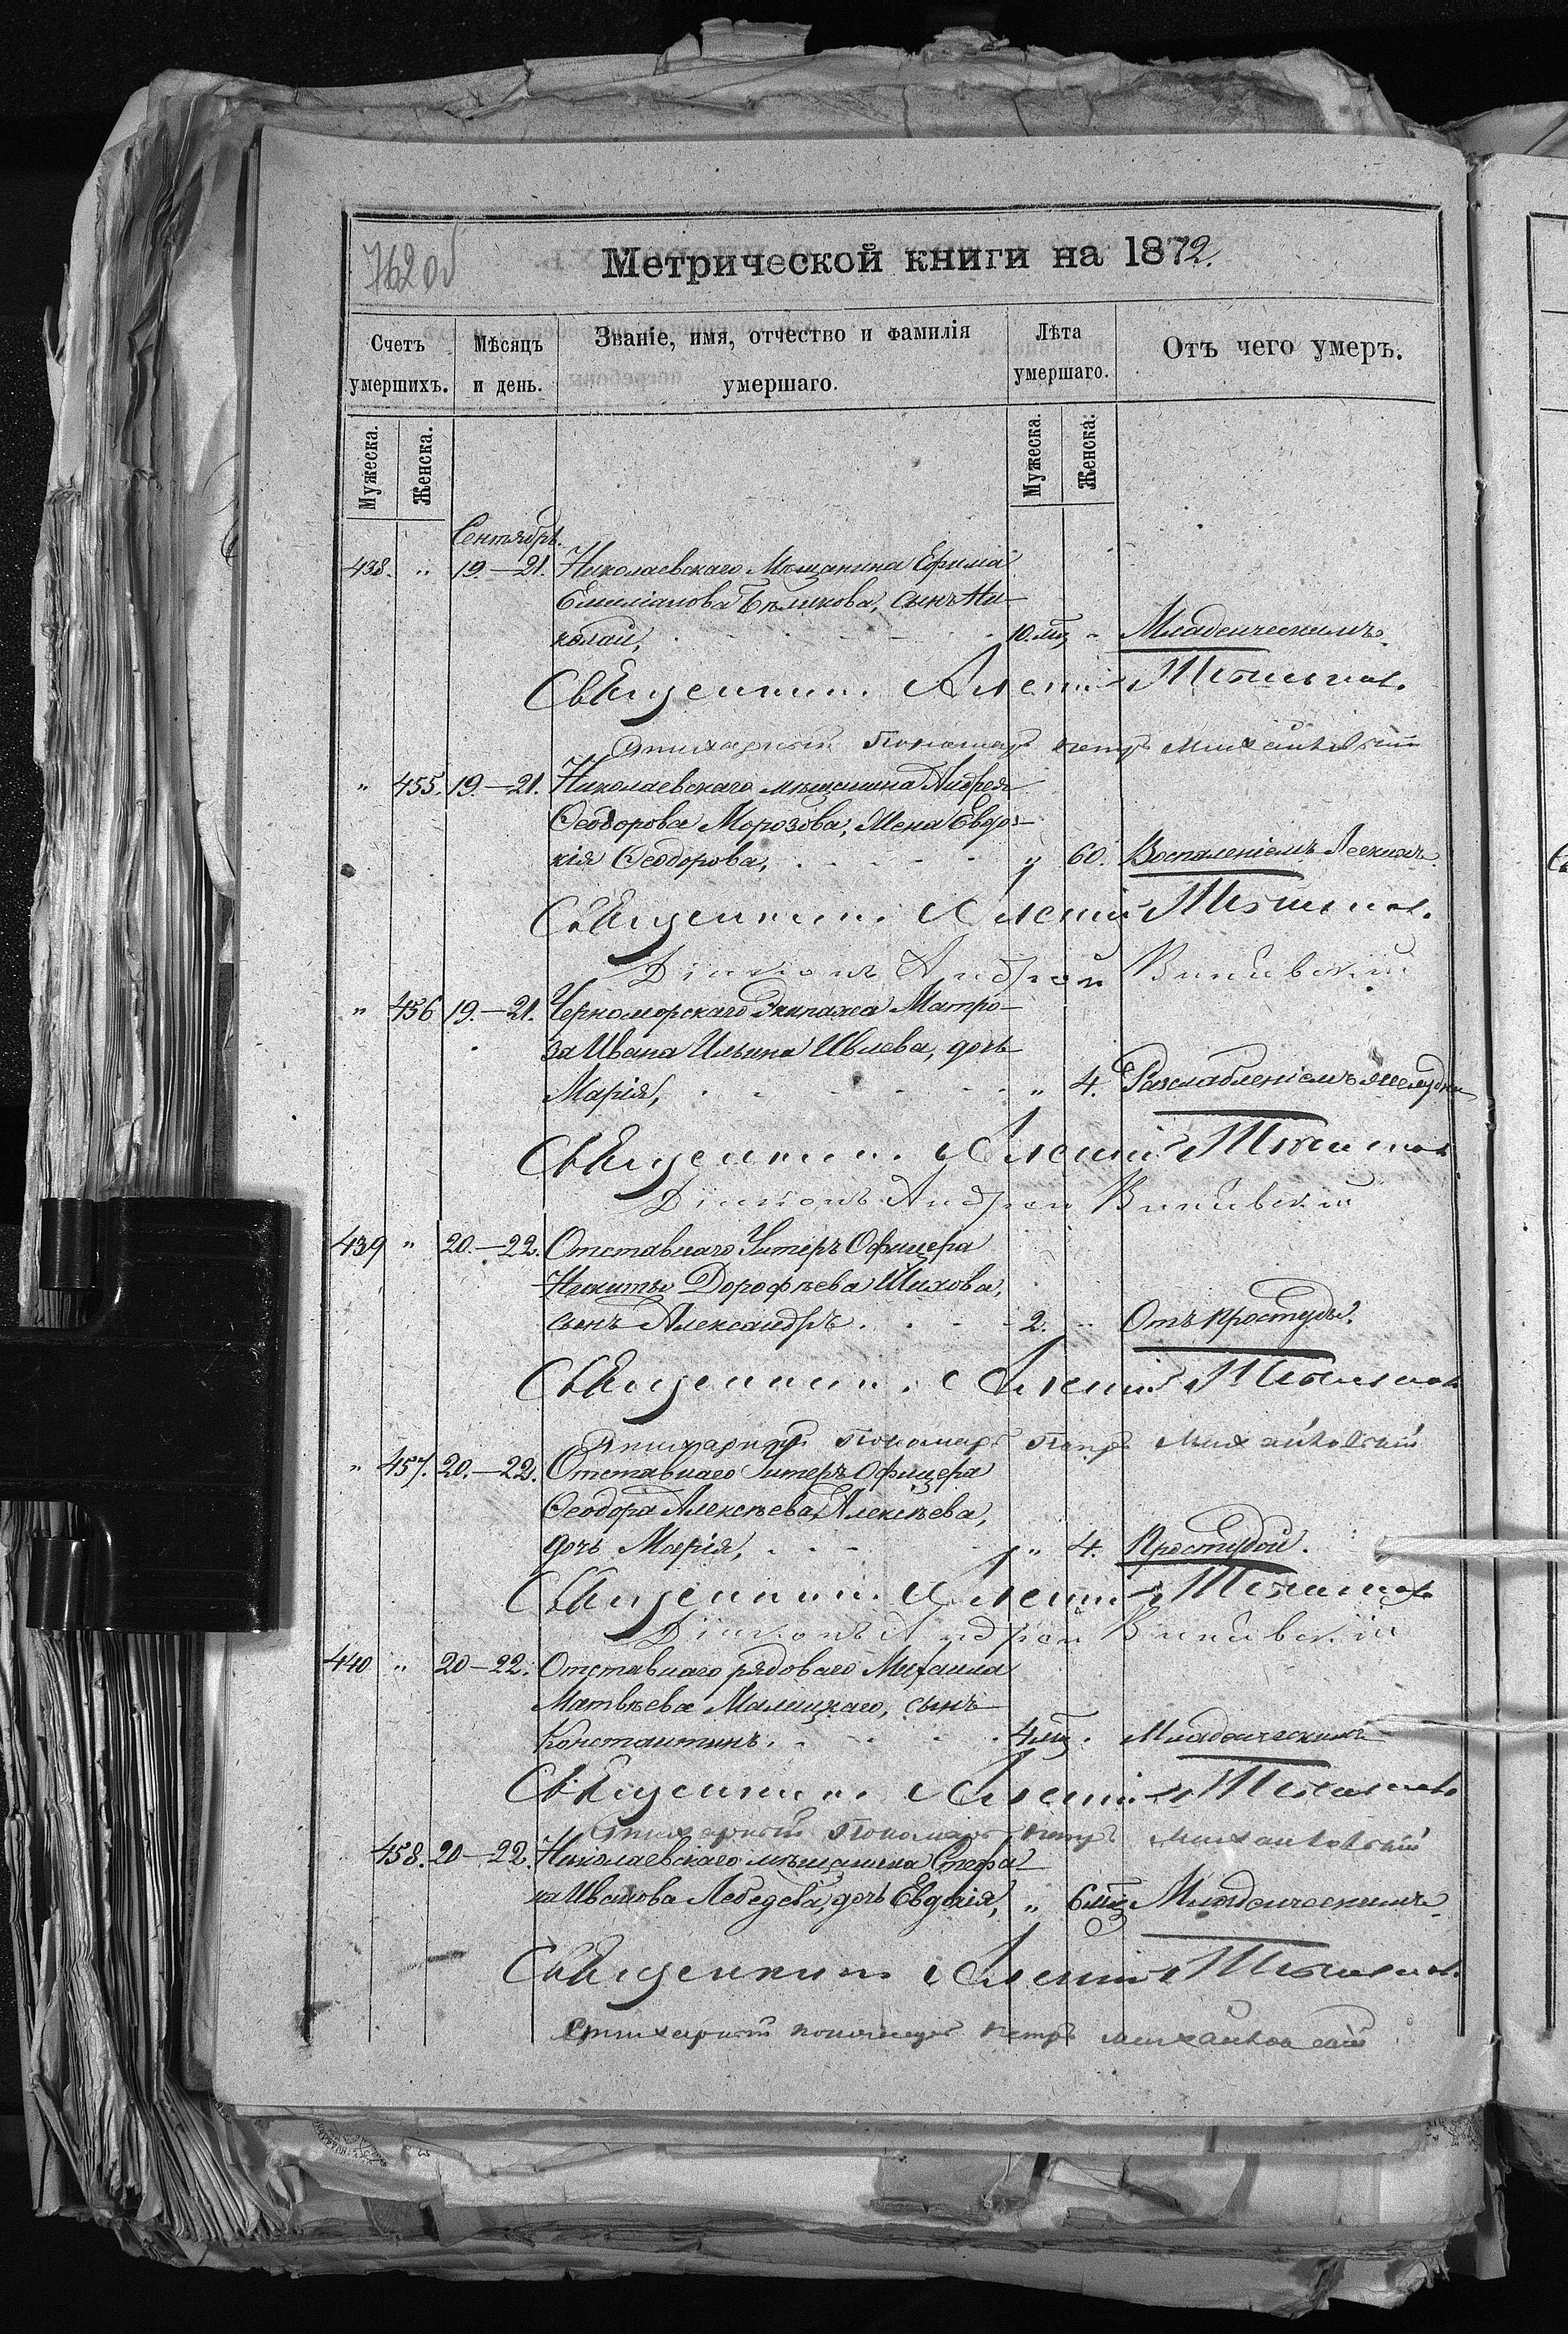 762 об
Метрической книги на 1872.
Счетъ умершихъ. Мѣсяцъ и день. Званіе, имя, отчество и фамилія умершаго. Лѣта умершаго. Отъ чего умеръ.
Мужеска. Женска. Мужеска. Женска.
Сентябрь.
438. " 19.—21. Николаевскаго Мѣщанина Ефима
Емиліанова Бѣликова, сынъ Ни-
колай, 10. мц " Младенческимъ.
Священникъ Алексій
Стихарный Пономарь Петръ Михайловскій
" 455. 19.—21. Николаевскаго мѣщанина Андрея
Ѳеодорова Морозова, жена Евдо-
кія Ѳеодорова, " 60. Воспаленіемъ Легкихъ.
Священникъ Алексій
Діаконъ Андрей
" 456 19.—21. Черноморскаго Экипажа Матро-
за Ивана Ильина Ивлева, дочь
Марія, " 4. Разслабленіемъ желудка
Священникъ Алексій
Діаконъ Андрей
439 " 20.—22. Отставнаго Унтеръ Офицера
Никиты Дорофѣева Шихова,
сынъ Александръ. 2. " Отъ простуды.
Священникъ Алексій
Стихарный Пономарь Петръ Михайловскій
" 457. 20.—22. Отставнаго Унтеръ Офицера
Ѳеодора Алексѣева Алексѣева,
дочь Марія, " 4. Простудой.
Священникъ Алексій
Діаконъ Андрей
440 " 20—22. Отставнаго рядоваго Михаила
Матвѣева Малицкаго, сынъ
Константинъ. 4 мц. Младенческимъ
Священникъ Алексій
Стихарный Пономарь Петръ Михайловскій
458. 20—22. Николаевскаго мѣщанина Стефа-
на Иванова Лебедева, дочь Евдокія, " 6 мц Младенческимъ.
Священникъ Алексій
Стихарный пономарь Петръ Михайловскій